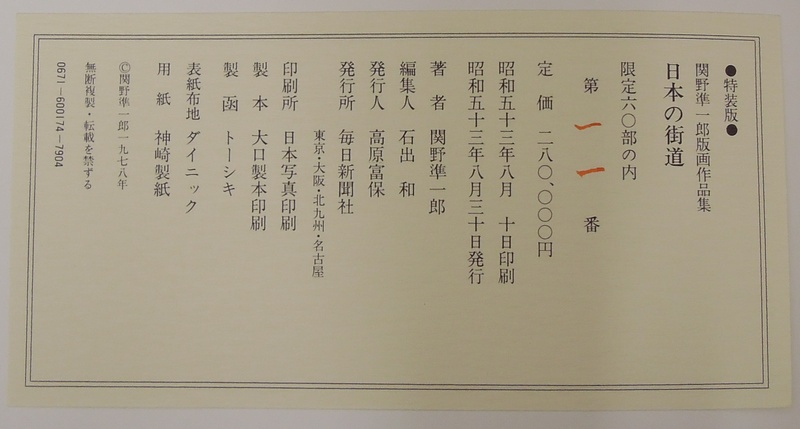 ●特装版●
関野準一郎版画作品集
日本の街道
限定六〇部の内
第 一一 番
定 価 二八〇、〇〇〇円
昭和五十三年八月 十日印刷
昭和五十三年八月三十日発行
著 者 関野準一郎
編集人 石出 和
発行人 高原富保
発行所 毎日新聞社
東京・大阪・北九州・名古屋
印刷所 日本写真印刷
製 本 大口製本印刷
製 函 トーシキ
表紙布地 ダイニック
用 紙 神崎製紙
©関野準一郎一九七八年
無断複製・転載を禁ずる
0671―600174―7904